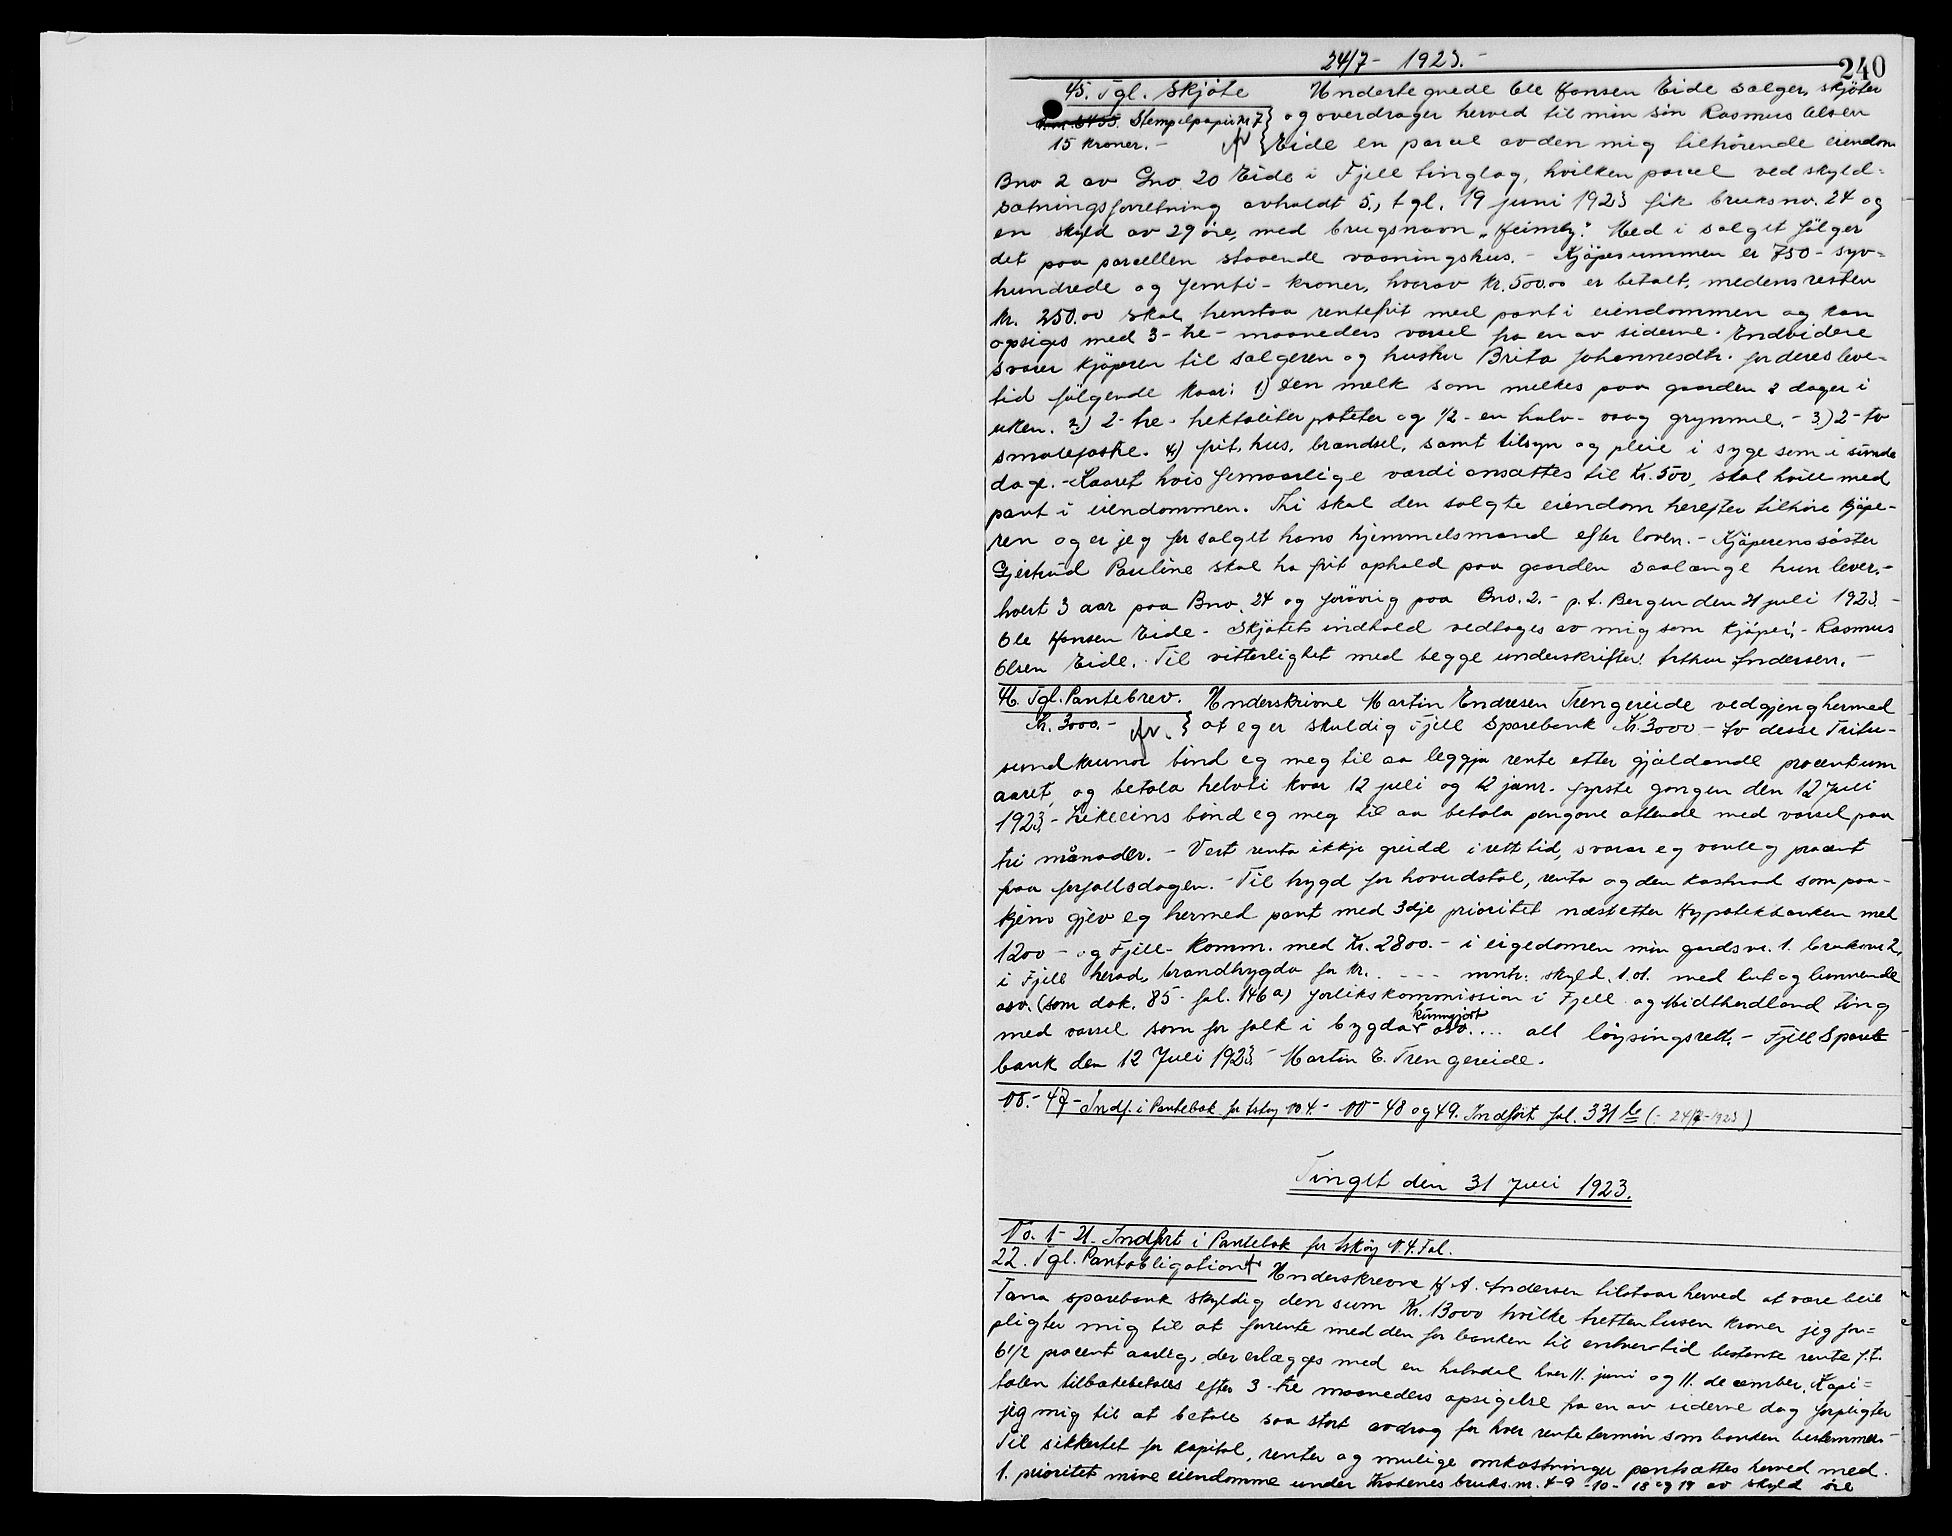 24/7 - 1923. -
240
45. Tgl. Skjøte Undertegnede Ole Hansen Eide sælger, skjøter
Stempelpapir nr 7 } og overdrager herved til min søn Rasmus Olsen
15 kroner. - } Eide en parcel av den mig tilhørende eiendom
Bno 2 av Gno 20 Eide i Fjell tinglag, hvilken parcel ved skyld=
sætningsforretning avholdt 5., tgl. 19 juni 1923 fik bruksno. 24 og
en skyld av 29 øre, med brugsnavn „Heimly". Med i salget følger
det paa parcellen staaende vaaningshus. - Kjøpesummen er 750 - syv=
hundrede og femti - kroner, hvorav kr. 500.00 er betalt, medens resten
kr. 250.00 skal henstaa rentefrit med pant i eiendommen og kan
opsiges med 3 - tre - maaneders varsel fra en av siderne. Endvidere
svarer kjøperen til sælgeren og hustru Brita Johannesdtr. for deres leve-
tid følgende kaar: 1) Den melk som melkes paa gaarden 2 dager i
uken. 2) 2 - tre - hektoliter poteter og 1/2 - en halv - vaag grynmel. - 3) 2 - to
smalefostre. 4) frit hus, brændsel, samt tilsyn og pleie i syge som i sunde
dage. - Kaaret hvis femaarlige værdi ansættes til Kr. 500, skal hvile med
pant i eiendommen. Thi skal den solgte eiendom herefter tilhøre kjøpe-
ren og er jeg for salget hans hjemmelsmand efter loven. - Kjøperens søster
Gjertrud Pauline skal ha frit ophold paa gaarden saalænge hun lever. -
hvert 3 aar paa Bno. 24 og forøvrig paa Bno. 2. - p.t. Bergen den 21 juli 1923. -
Ole Hansen Eide - Skjøtets indhold vedtages av mig som kjøper. - Rasmus
Olsen Eide. Til vitterlighet med begge underskrifter: Arthur Andersen. -
46. Tgl. Pantebrev. Underskrivne Martin Endresen Trengereide vedgjeng hermed
Kr. 3000. - } at eg er skuldig Fjell Sparebank Kr. 3000 - Av desse Tritu-
sund krunor bind eg meg til aa leggja rente etter gjældande procent um
aaret, og betala helvti kvar 12 juli og 12 janr. fyrste gongen den 12 Juli
1923. - Likeeins bind eg meg til aa betala pengane attende med varsel paa
tri månader. - Vert renta ikkje greidd i rett tid, svarar eg vanleg procent
fraa forfallsdagen. - Til trygd for hovudstol, renta og den kostnad som paa-
kjem gjev eg hermed pant med 3dje prioritet næst etter Hypotekbanken med
1200 - og Fjell - Komm. med Kr. 2800. - i eigedomen min gardsnr. 1. bruksnr 2,
i Fjell herad, brandtrygda for kr. - - - mtr. skyld. 1.01. med lut og lunnende
osv. (som dok. 85 - fol. 146a) forlikskommission i Fjell og Midthordland ting
med varsel som for folk i bygdar kunngjort osv. ... all løysingsrett. - Fjell Spare
bank den 12 Juli 1923 - Martin E. Trengereide.
No. - 47 - Indf. i Pantebok for Askøy no 4. - No - 48 og 49. Indført fol. 331 b (- 24/7 - 1923)
Tinget den 31 juli 1923.
No. 1 - 21. Indført i Pantebok for Askøy N. 4. Fol.
22. Tgl. Pantobligation Underskrevne H A. Andersen tilstaar herved at være blit
Fana sparebank skyldig den sum Kr. 13000 hvilke tretten tusen kroner jeg for=
pligter mig til at forrente med den for banken til enhver tid bestemte rente f.t.
6 1/2 procent aarleg, der erlægges med en halvdel hver 11. juni og 11. december. Kapi=
talen tilbakebetales efter 3 - tre maaneders opsigelse fra en av siderne dog forpligter
jeg mig til at betale saa stort avdrag for hver rentetermin som banken bestemmer. -
Til sikkerhet for kapital, renter og mulige omkostninger pantsættes herved med
1. prioritet mine eiendomme under bruks. nr. 4 - 9 - 10 - 18 og 19 av skyld øre